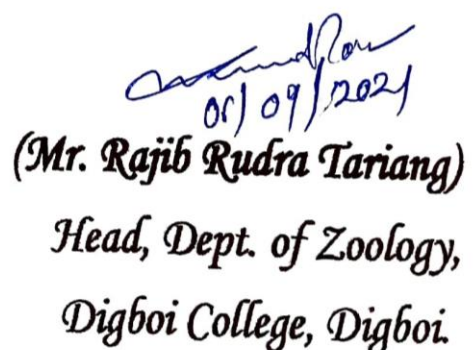 (Mr. Rajib Rudra Tariang)
Head, Dept. of Zoology,
Digboi College, Digboi.